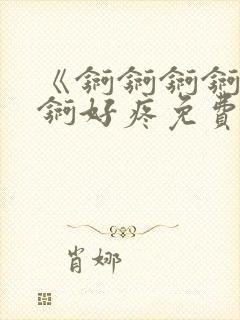 《锕锕锕锕
锕好疼免費
肖娜